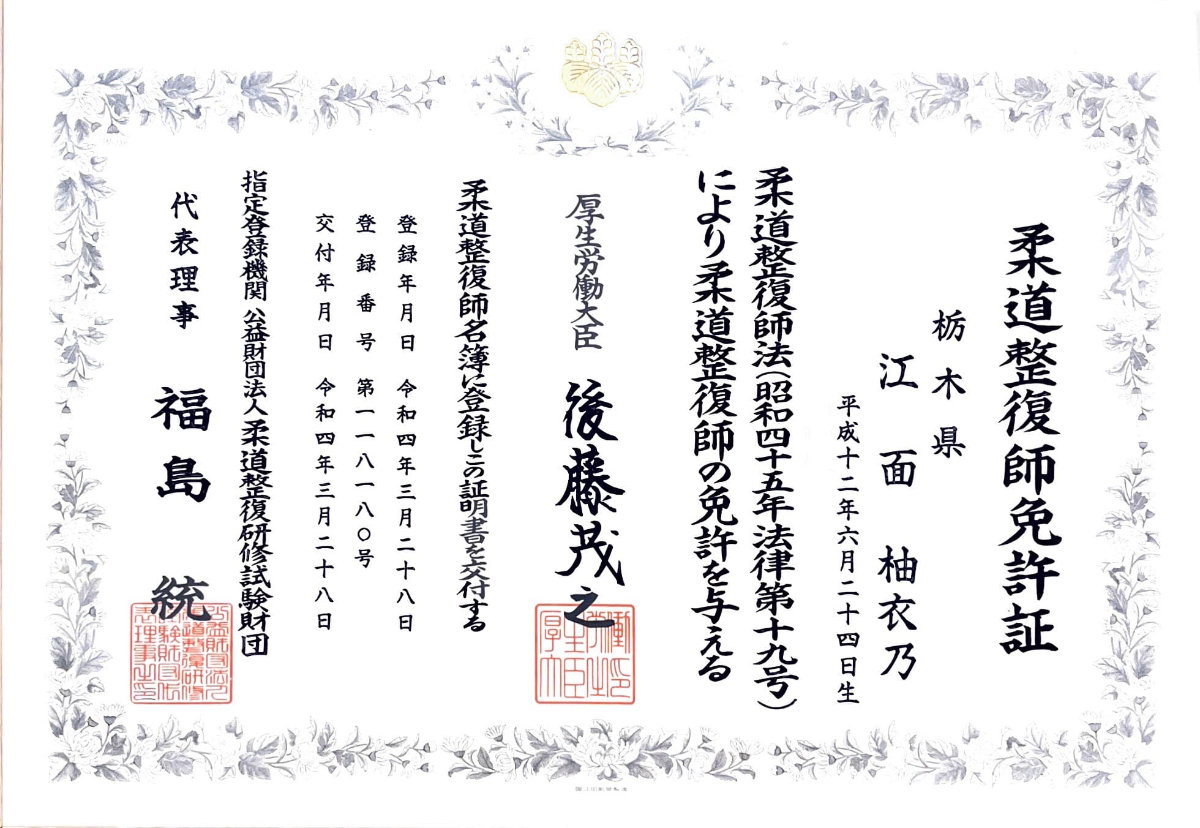 柔道整復師免許証
栃木県
江面 柚衣乃
平成十二年六月二十四日生
柔道整復師法(昭和四十五年法律第十九号)
により柔道整復師の免許を与える
厚生労働大臣 後藤茂之
柔道整復師名簿に登録しこの証明書を交付する
登録年月日 令和四年三月二十八日
登録番号 第一一八一八〇号
交付年月日 令和四年三月二十八日
指定登録機関 公益財団法人 柔道整復研修試験財団
代表理事 福島 統